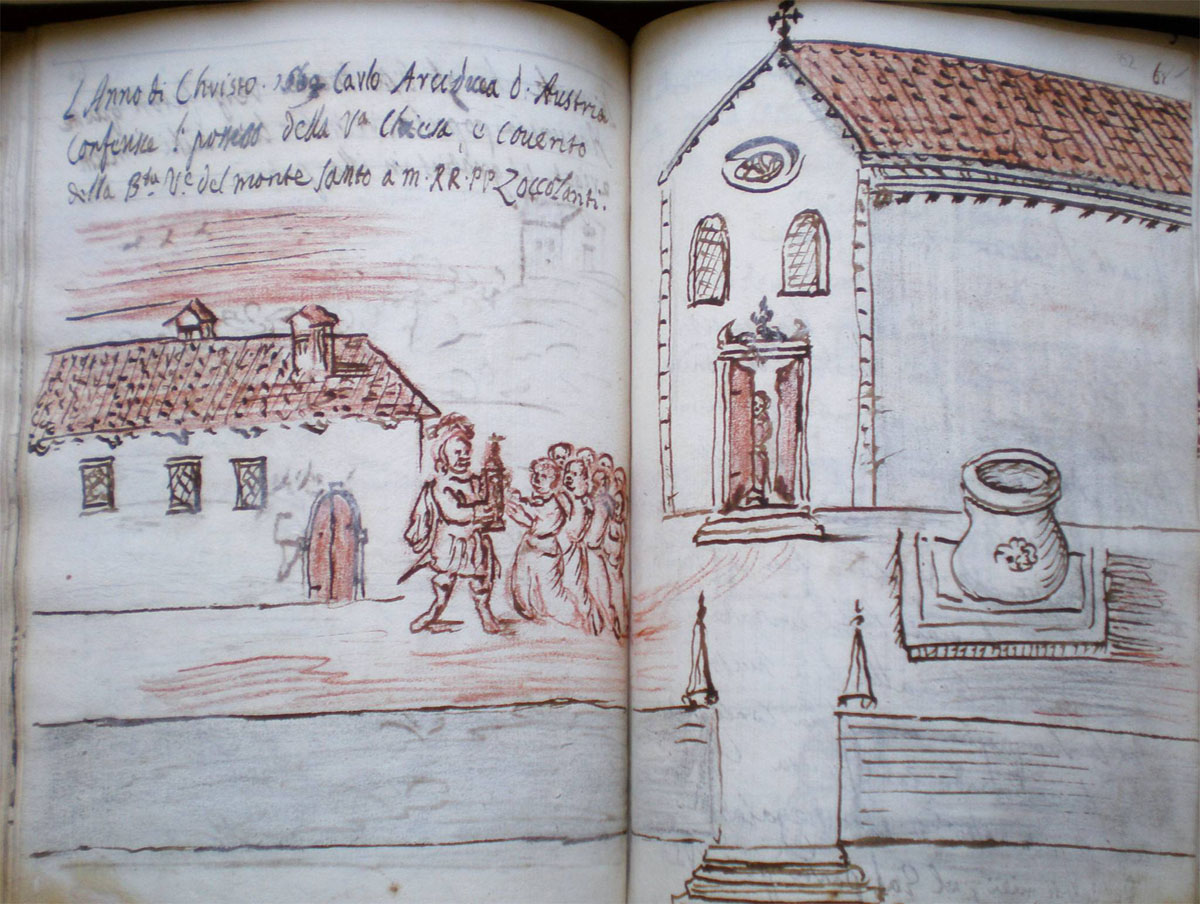 L Anno di Christo. 1564 Carlo Arciduca d. Austria
Conferisce l. posesso della Va Chiesa, e Covento
della Bta Ve del monte Santo a m. RR. PP. Zoccolanti.
62 61